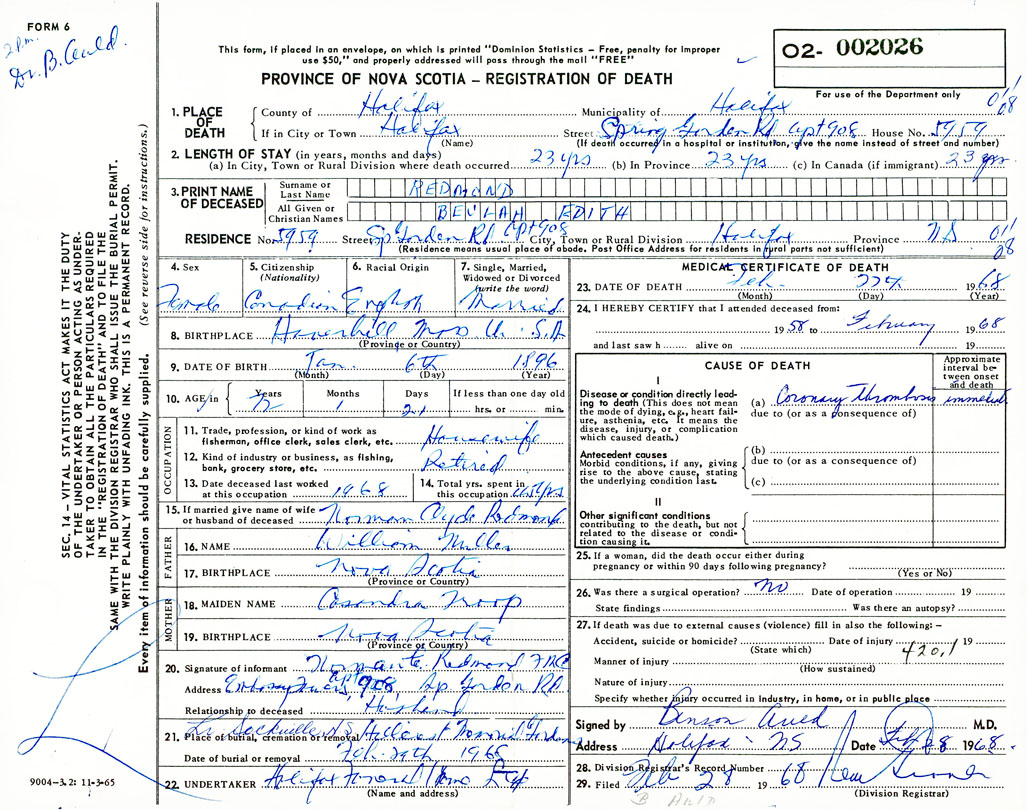 FORM 6
2 p.m.
Dr. B. Auld.
This form, if placed in an envelope, on which is printed "Dominion Statistics – Free, penalty for improper
use $50," and properly addressed will pass through the mail "FREE"
PROVINCE OF NOVA SCOTIA – REGISTRATION OF DEATH
02- 002026
For use of the Department only
SEC. 14 – VITAL STATISTICS ACT MAKES IT THE DUTY
OF THE UNDERTAKER OR PERSON ACTING AS UNDER-
TAKER TO OBTAIN ALL THE PARTICULARS REQUIRED
IN THE "REGISTRATION OF DEATH" AND TO FILE THE
SAME WITH THE DIVISION REGISTRAR WHO SHALL ISSUE THE BURIAL PERMIT.
WRITE PLAINLY WITH UNFADING INK. THIS IS A PERMANENT RECORD.
Every item of information should be carefully supplied. (See reverse side for instructions.)
1. PLACE OF DEATH
County of Halifax Municipality of Halifax
If in City or Town Halifax Street Spring Garden Rd apt 908 House No. 5959
(Name) (If death occurred in a hospital or institution, give the name instead of street and number)
2. LENGTH OF STAY (in years, months and days)
(a) In City, Town or Rural Division where death occurred 23 yrs (b) In Province 23 yrs (c) In Canada (if immigrant) 23 yrs
3. PRINT NAME OF DECEASED
Surname or Last Name REDMOND
All Given or Christian Names BEULAH EDITH
RESIDENCE No. 5959 Street Sp Garden Rd Apt 908 City, Town or Rural Division Halifax Province NS
(Residence means usual place of abode. Post Office Address for residents in rural parts not sufficient)
4. Sex Female
5. Citizenship (Nationality) Canadian
6. Racial Origin English
7. Single, Married, Widowed or Divorced (write the word) Married
8. BIRTHPLACE Haverhill Mass U.S.A
(Province or Country)
9. DATE OF BIRTH Jan. 6th 1896
(Month) (Day) (Year)
10. AGE Years 72 Months 1 Days 21 If less than one day old hrs. or min.
OCCUPATION
11. Trade, profession, or kind of work as fisherman, office clerk, sales clerk, etc. Housewife
12. Kind of industry or business, as fishing, bank, grocery store, etc. Retired
13. Date deceased last worked at this occupation 1968
14. Total yrs. spent in this occupation
15. If married give name of wife or husband of deceased Norman Clyde Redmond
FATHER
16. NAME William Miller
17. BIRTHPLACE Nova Scotia
(Province or Country)
MOTHER
18. MAIDEN NAME Casandra Troop
19. BIRTHPLACE Nova Scotia
(Province or Country)
20. Signature of informant Redmond
Address Embassy Towers apt 908 Sp Garden Rd
Relationship to deceased Husband
21. Place of burial, cremation or removal Lr Sackville NS
Date of burial or removal Feb. 1968
22. UNDERTAKER Halifax Funeral Home Ltd
(Name and address)
9004-3.2: 11-3-65
MEDICAL CERTIFICATE OF DEATH
23. DATE OF DEATH Feb. 27th 1968
(Month) (Day) (Year)
24. I HEREBY CERTIFY that I attended deceased from:
1958 to February 1968
and last saw h alive on 19
CAUSE OF DEATH
Approximate interval between onset and death
I
Disease or condition directly leading to death (This does not mean the mode of dying, e.g., heart failure, asthenia, etc. It means the disease, injury, or complication which caused death.)
(a) Coronary Thrombosis immediate
due to (or as a consequence of)
Antecedent causes
Morbid conditions, if any, giving rise to the above cause, stating the underlying condition last.
(b)
due to (or as a consequence of)
(c)
II
Other significant conditions
contributing to the death, but not related to the disease or condition causing it.
25. If a woman, did the death occur either during pregnancy or within 90 days following pregnancy?
(Yes or No)
26. Was there a surgical operation? No Date of operation 19
State findings Was there an autopsy?
27. If death was due to external causes (violence) fill in also the following: –
Accident, suicide or homicide? Date of injury 19
(State which)
420.1
Manner of injury
(How sustained)
Nature of injury
Specify whether injury occurred in industry, in home, or in public place
Signed by Benson Auld M.D.
Address Halifax NS Date Feb 28 1968
28. Division Registrar's Record Number
29. Filed Feb 28 1968
(Division Registrar)